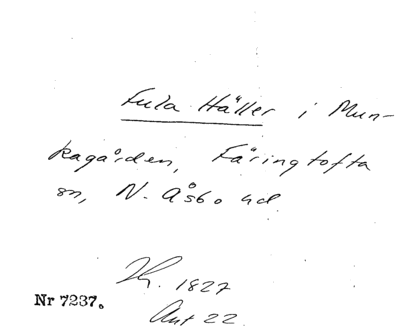 Fula Häller i Mun-
kagården, Färingtofta
sn, N. Åsbo hd
Th. 1827
Ant 22.
Nr 7237.